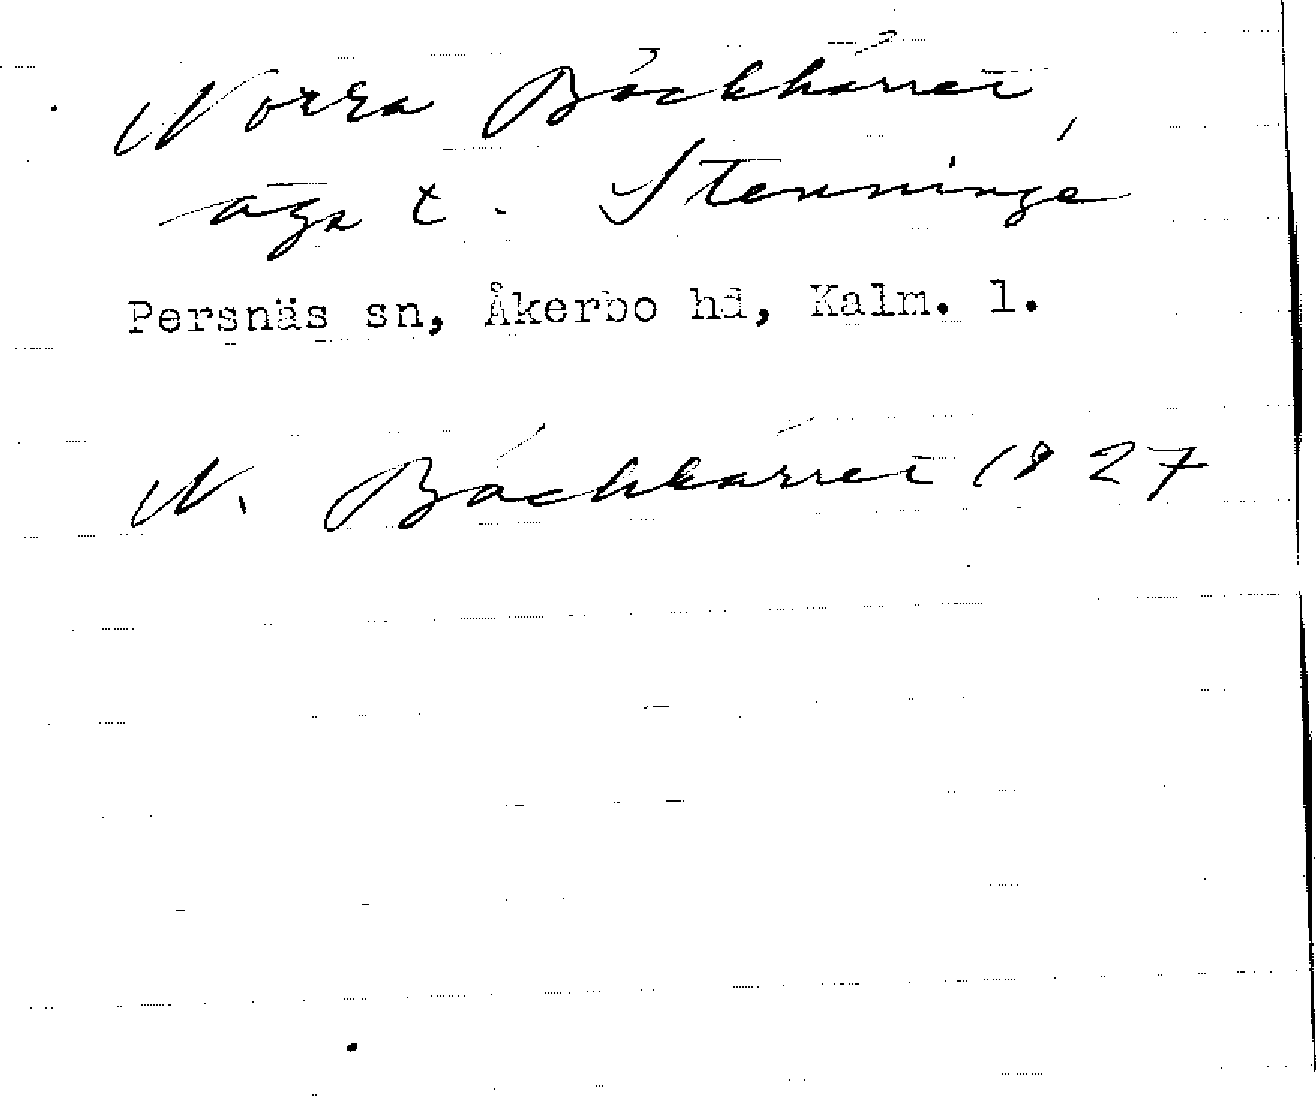 Norra Bäckkärret
äga t. Stenninge
Persnäs sn, Åkerbo hd, Kalm. l.
N. Bäckkärret 1827